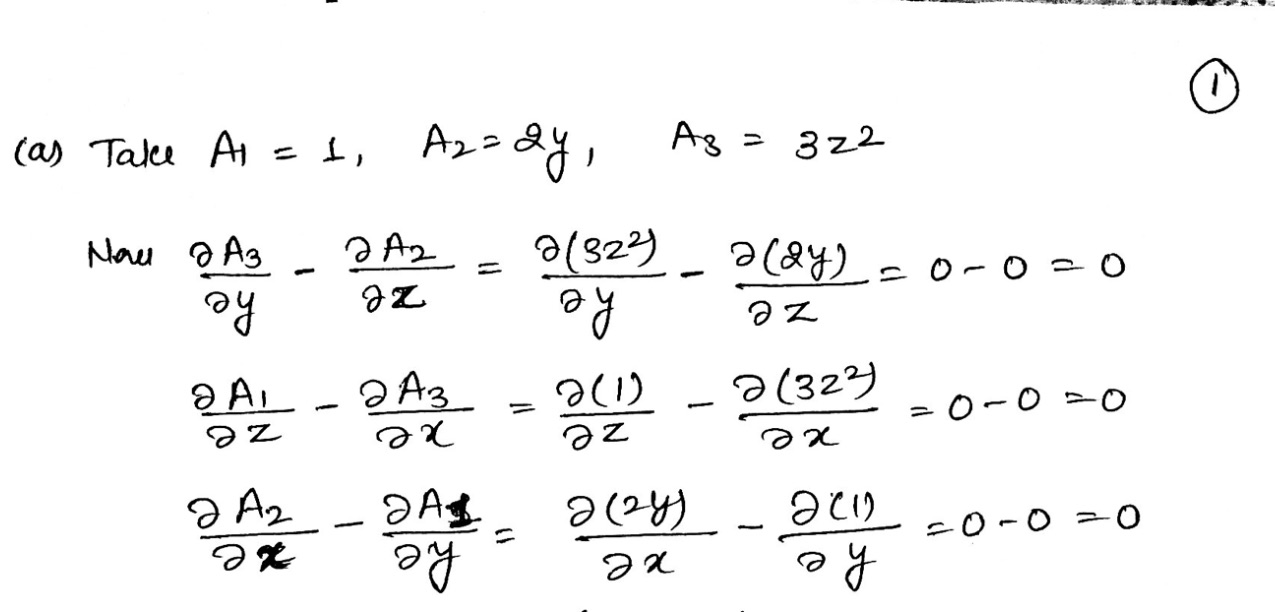 ①
(a) Take A₁ = 1, A₂ = 2y, A₃ = 3z²
Now ∂A₃/∂y - ∂A₂/∂z = ∂(3z²)/∂y - ∂(2y)/∂z = 0 - 0 = 0
∂A₁/∂z - ∂A₃/∂x = ∂(1)/∂z - ∂(3z²)/∂x = 0 - 0 = 0
∂A₂/∂x - ∂A₁/∂y = ∂(2y)/∂x - ∂(1)/∂y = 0 - 0 = 0